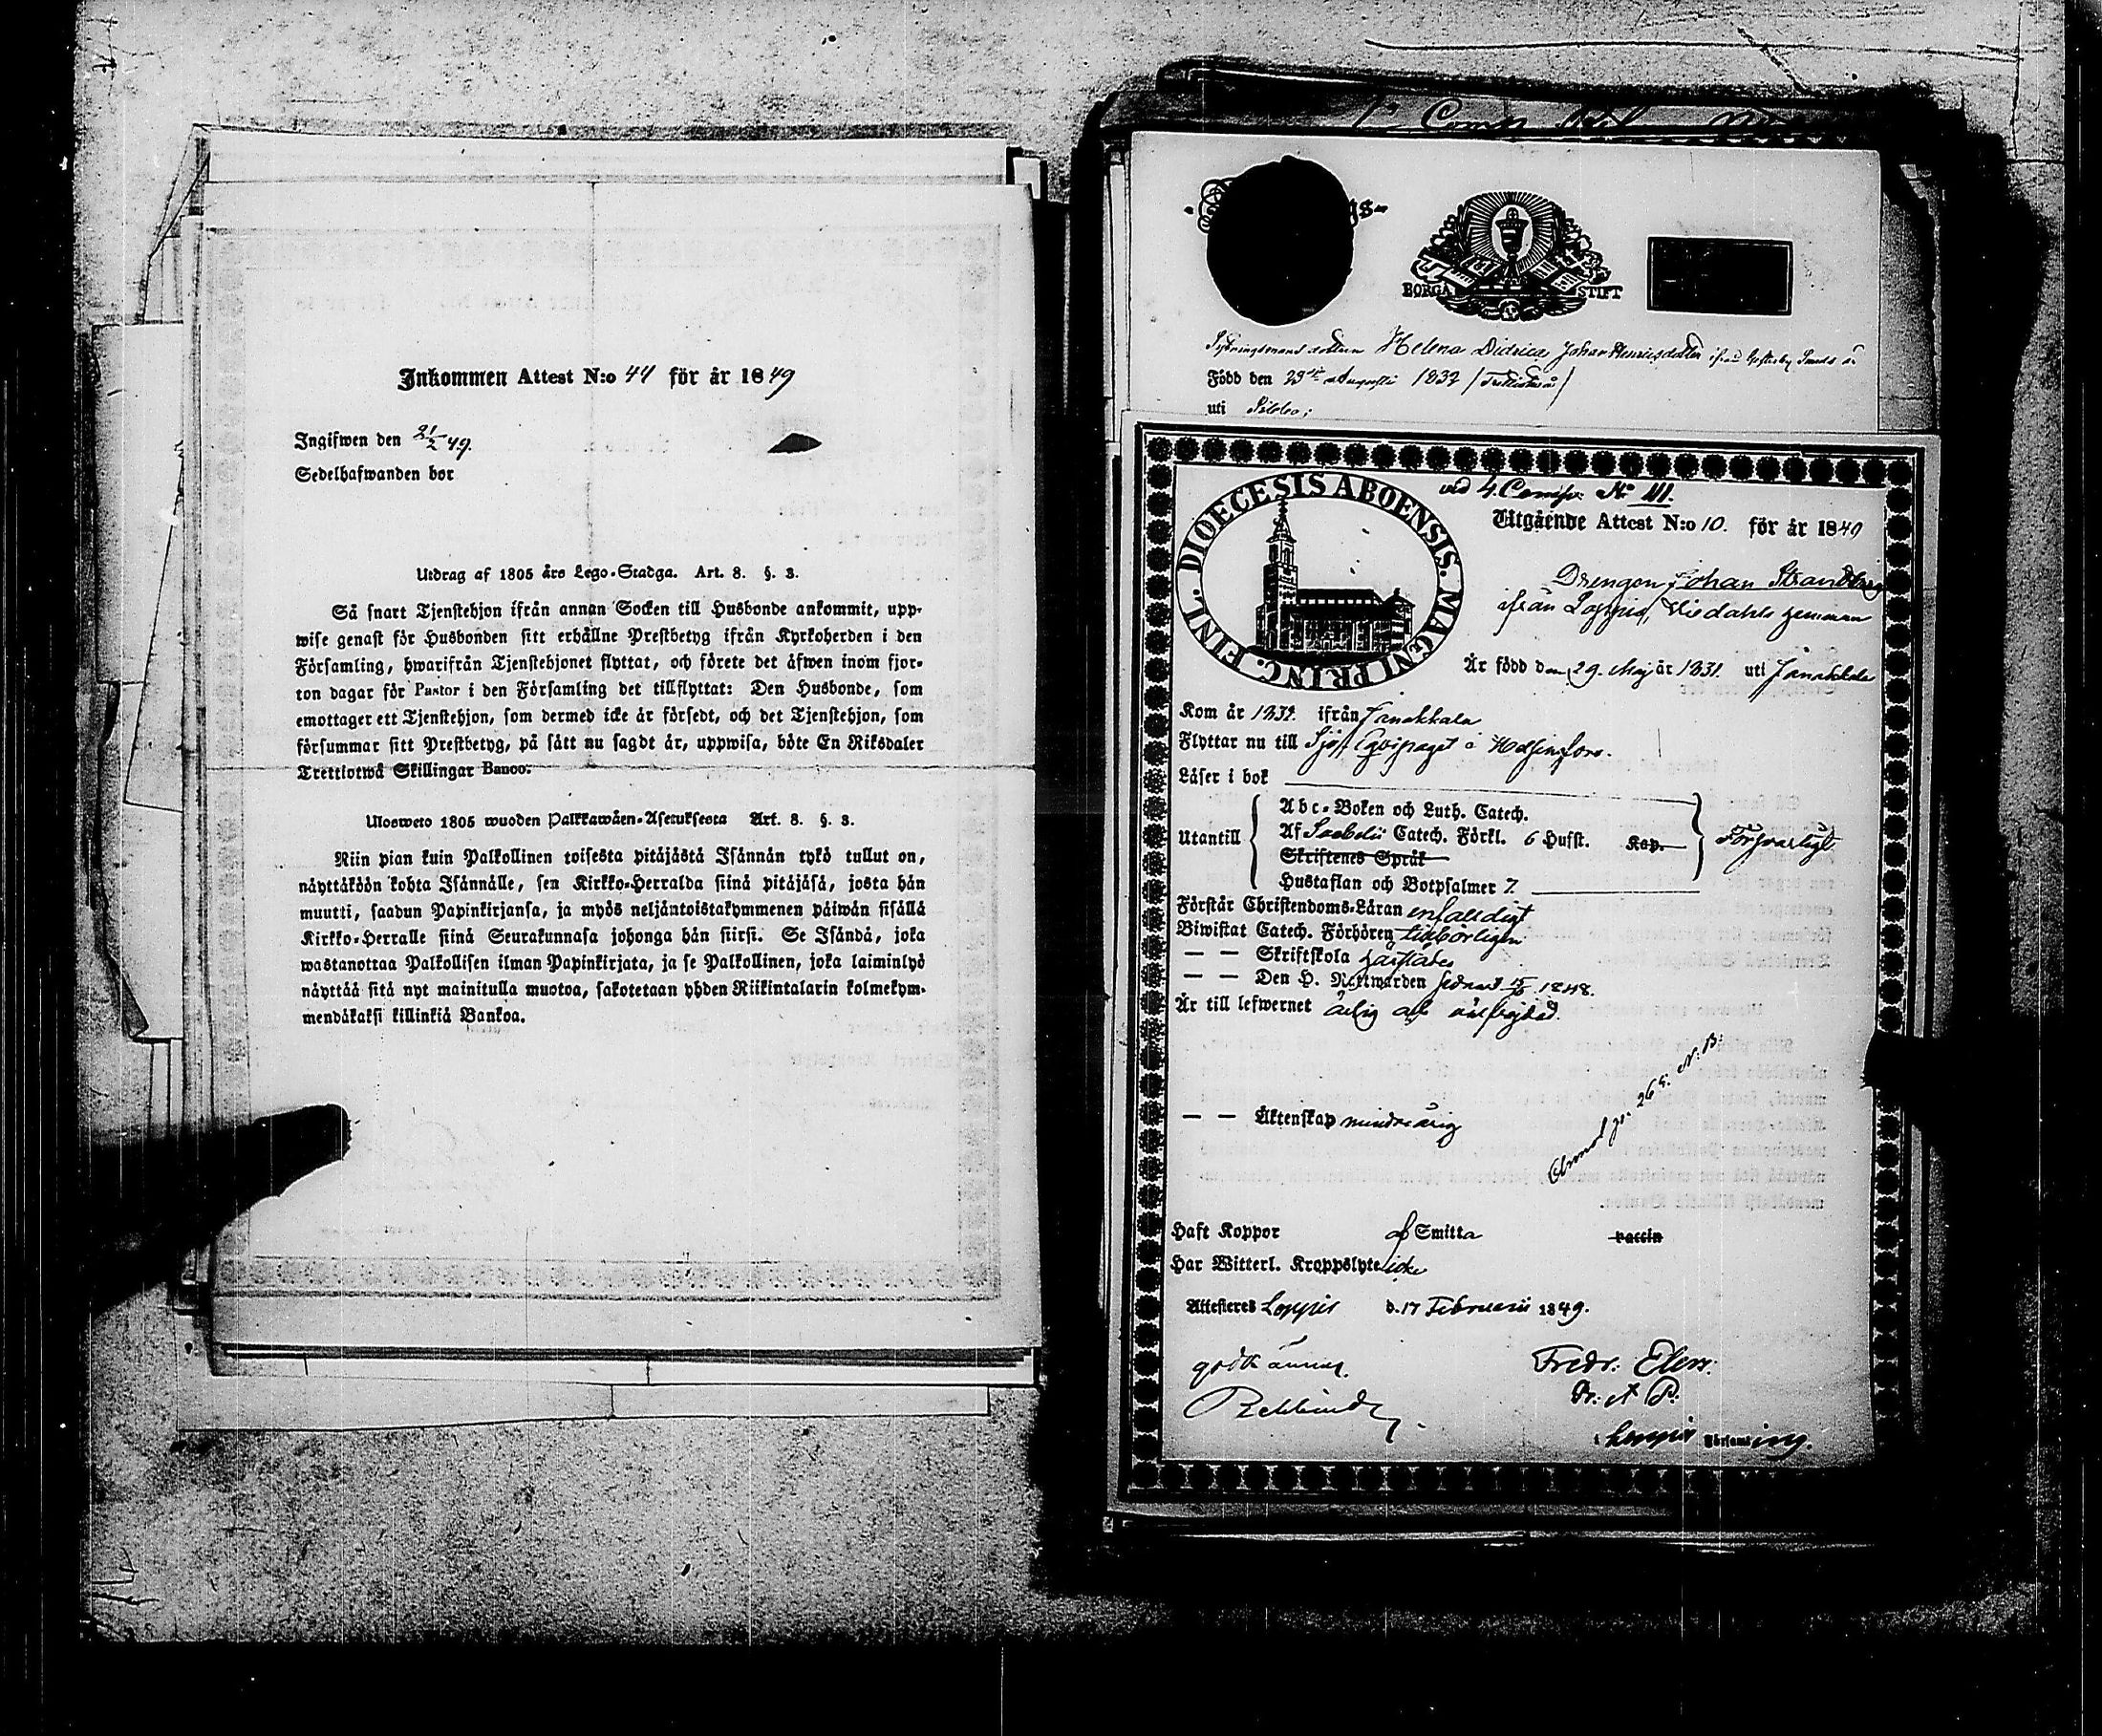 Inkommen Attest N:o 44 för år 1849
Ingifwen den 21/2 49.
Sedelhafwanden bor
Utdrag af 1805 års Lego-Stadga. Art. 8. §. 3.
Så snart Tjenstehjon ifrån annan Socken till Husbonde ankommit, upp-
wise genast för Husbonden sitt erhållne Prestbetyg ifrån Kyrkoherden i den
Församling, hwarifrån Tjenstehjonet flyttat, och förete det äfwen inom fjor-
ton dagar för Pastor i den Församling det tillflyttat: Den Husbonde, som
emottager ett Tjenstehjon, som dermed icke är försedt, och det Tjenstehjon, som
försummar sitt Prestbetyg, på sätt nu sagdt är, uppwisa, böte En Riksdaler
Trettiotwå Skillingar Banco.
Ulosweto 1805 wuoden Palkkawäen-Asetuksesta Art. 8. §. 3.
Niin pian kuin Palkollinen toisesta pitäjästä Isännän tykö tullut on,
näyttäköön kohta Isännälle, sen Kirkko-Herralda siinä pitäjäsä, josta hän
muutti, saadun Papinkirjansa, ja myös neljäntoistakymmenen päiwän sisällä
Kirkko-Herralle siinä Seurakunnasa johonga hän siirsi. Se Isändä, joka
wastanottaa Palkollisen ilman Papinkirjata, ja se Palkollinen, joka laiminlyö
näyttää sitä nyt mainitulla muotoa, sakotetaan yhden Riikintalarin kolmekym-
mendäkaksi killinkiä Bankoa.
BORGÅ STIFT
Helena Didrica Johan Henricsdotter
Född den 23 Augusti 1832
uti Sibbo;
DIOECESIS ABOENSIS. MAGNI PRINC. FINL.
vid 4. Comp. No 111.
Utgående Attest N:o 10. för år 1849
Drengen Johan Strandberg
ifrån Loppis, hemman
Är född den 29. Maj år 1831. uti Janakkala
Kom år 1832. ifrån Janakkala
Flyttar nu till Sjö Eqvipaget i Helsingfors.
Läser i bok
Utantill
Abc-Boken och Luth. Catech.
Af Catech. Förkl. 6 Hufst. Kap.
Skriftenes Språk
Hustaflan och Botpsalmer 7
Försvarligt
Förstår Christendoms-Läran enfaldigt
Biwistat Catech. Förhören tillbörligen
— — Skriftskola
— — Den H. Nattwarden sednast 1848.
Är till lefwernet ärlig och välfrejdad.
— — Äktenskap minderårig
N: B:
Haft Koppor af Smitta vaccin
Har Witterl. Kroppslyte icke
Attesteras Loppis d. 17 Februarii 1849.
godkännes.
Fredr. Elers:
i Loppis Församling.